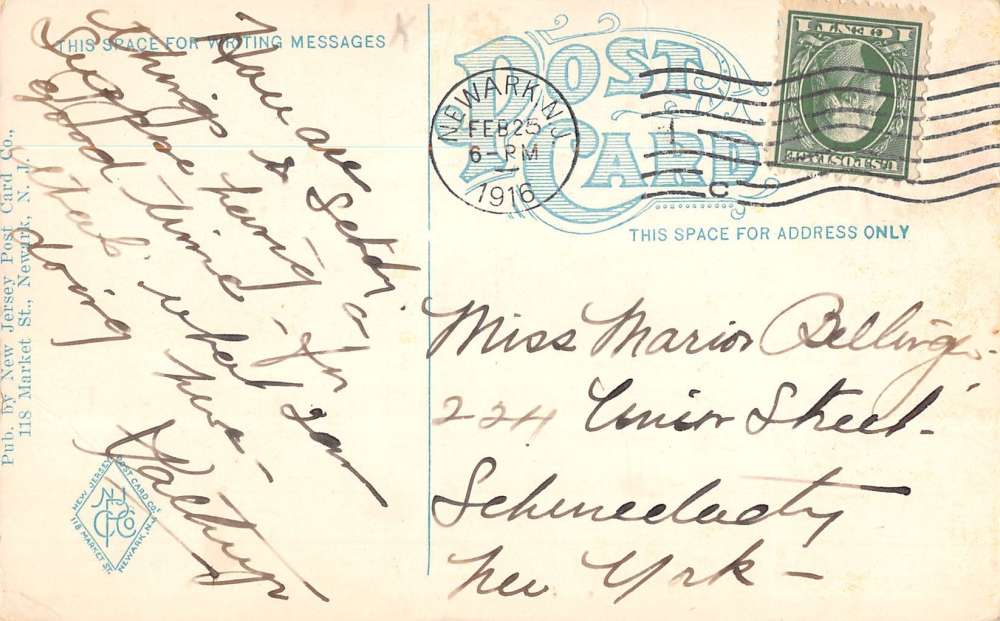 THIS SPACE FOR WRITING MESSAGES
How are
things &
Suppose having a
good time - for
that's what you
doing here -
POST
CARD
NEWARK, N.J.
FEB 25
6 - PM
1916
C
1 CENT 1
U.S. POSTAGE
THIS SPACE FOR ADDRESS ONLY
Miss Marion
224 Union Street -
Schenectady
New York -
Pub. by New Jersey Post Card Co.,
118 Market St., Newark, N. J.
NEW JERSEY POST CARD CO.
NJ
PCCo
118 MARKET ST. NEWARK, N.J.